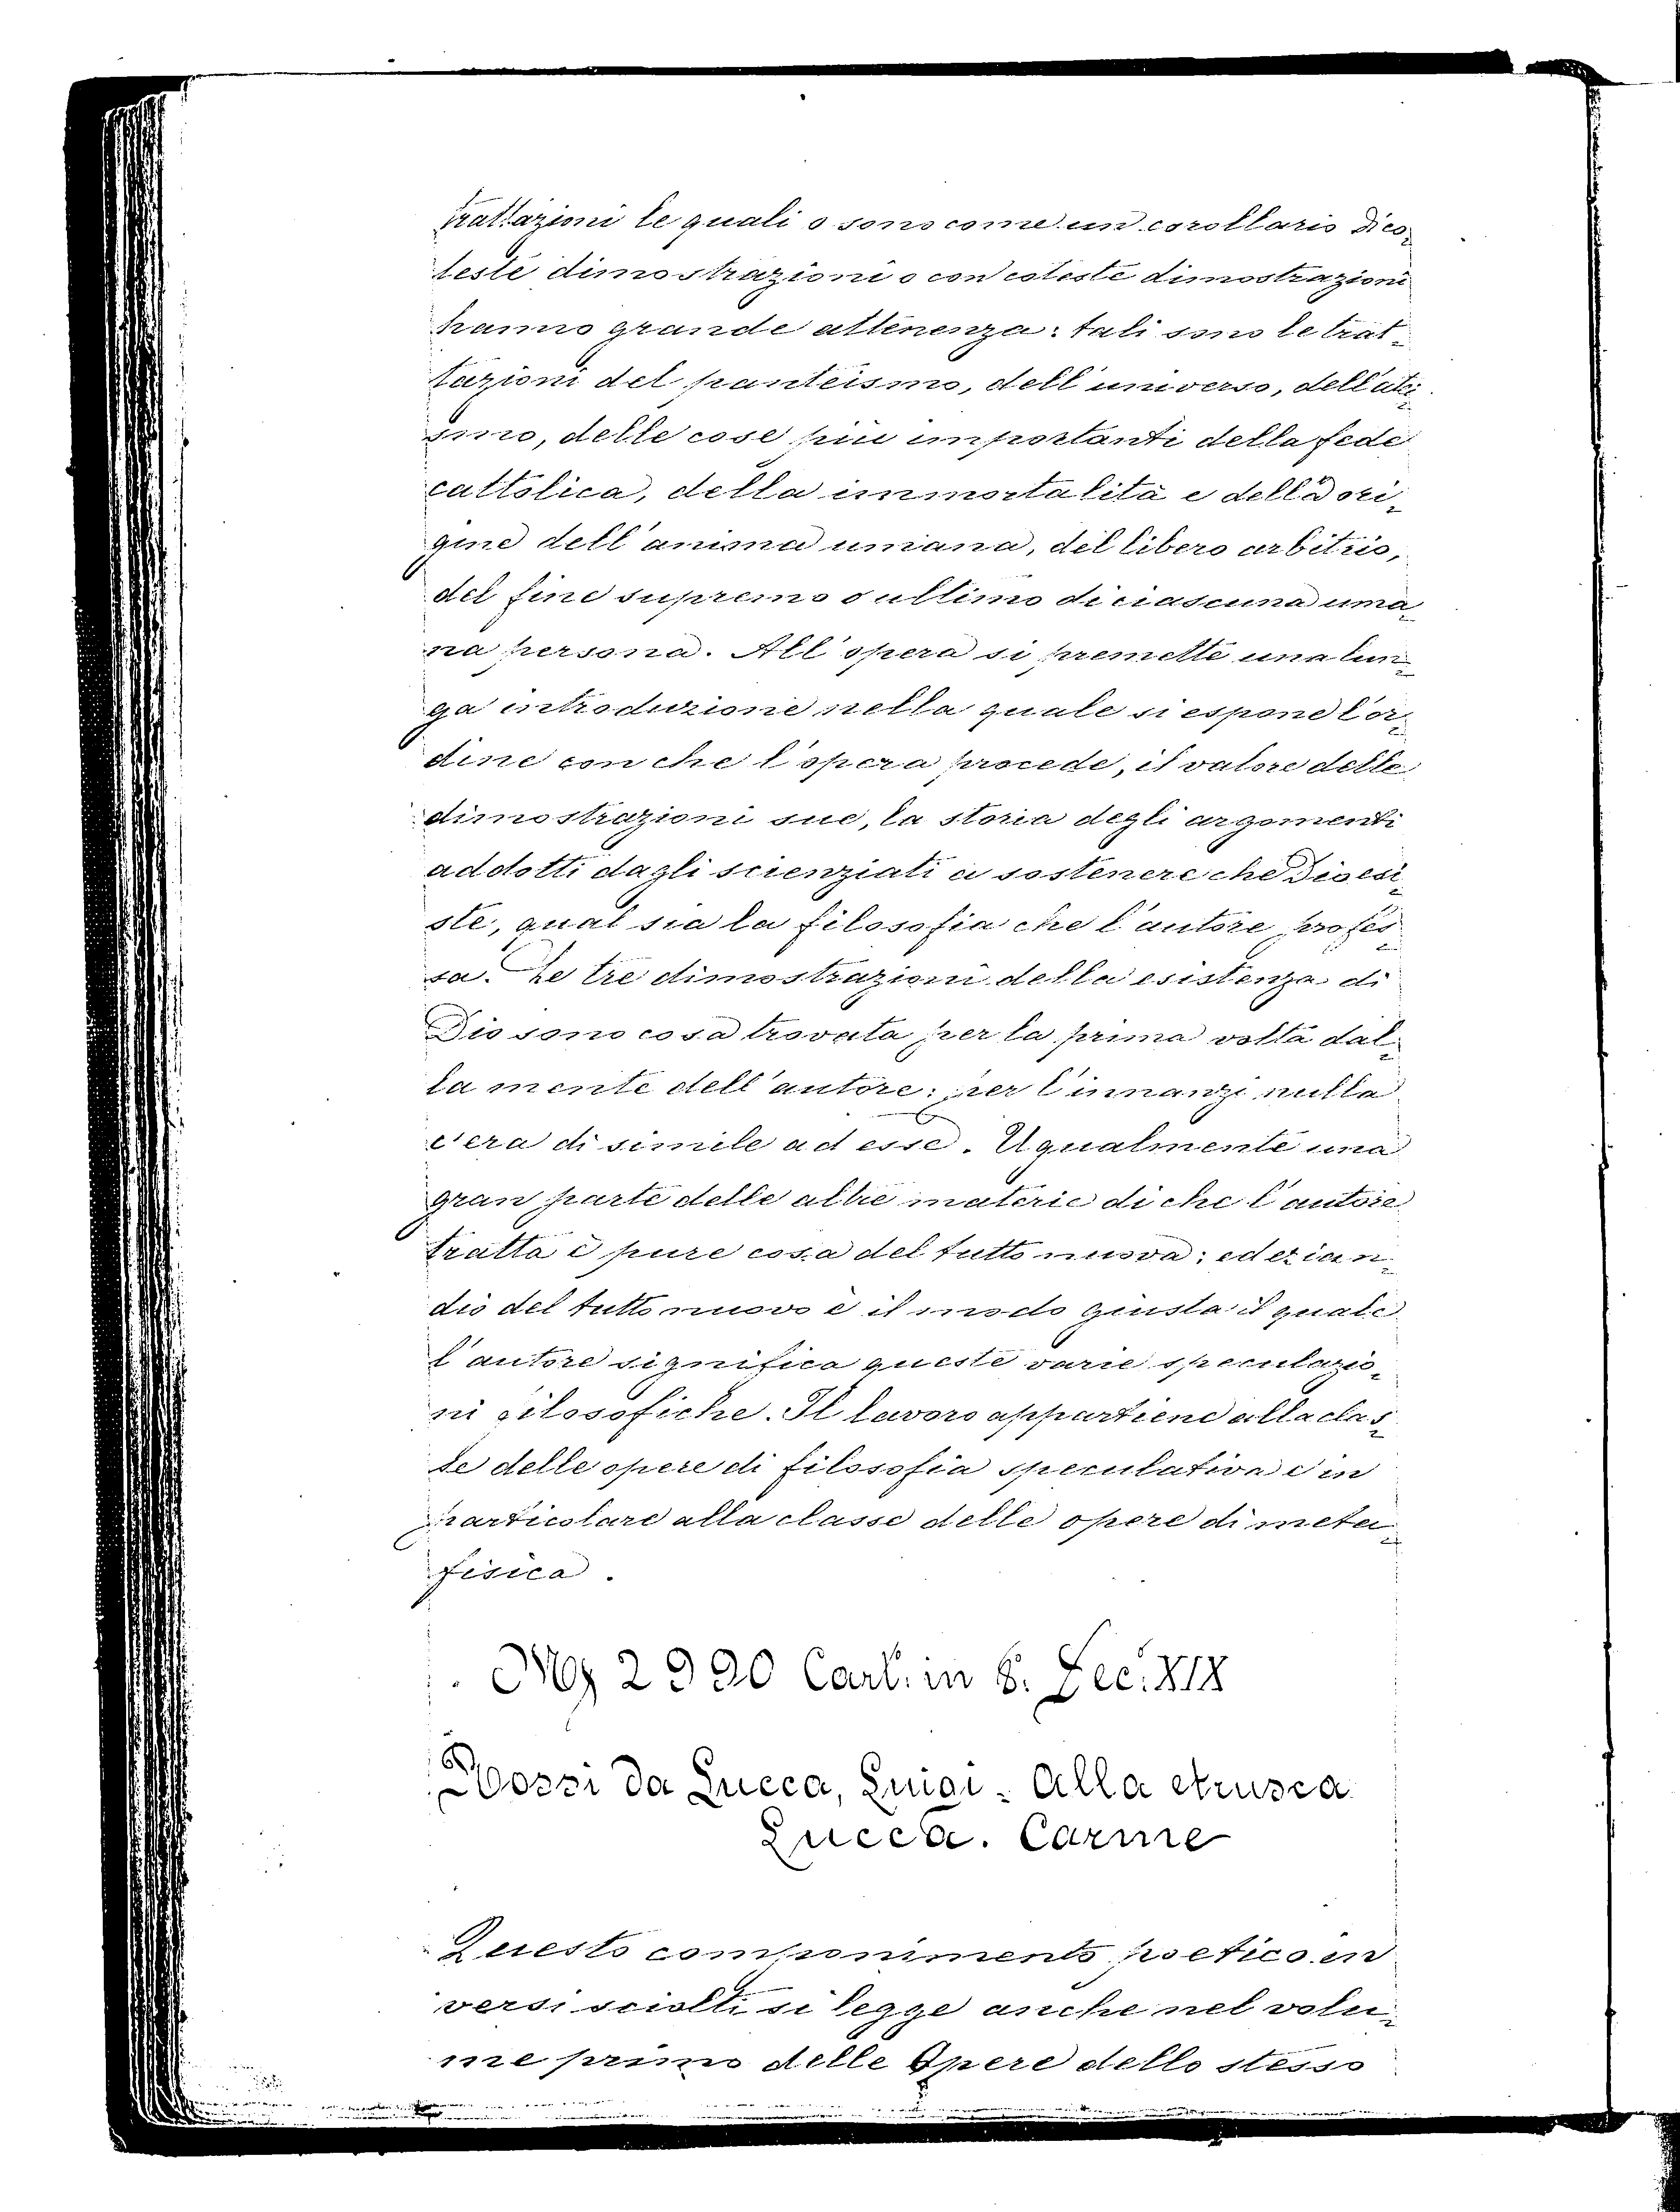 trattazioni le quali o sono come un corollario di co-
teste dimostrazioni o con coteste dimostrazioni
hanno grande attenenza: tali sono le trat-
tazioni del panteismo, dell'universo, dell'atei-
smo, delle cose più importanti della fede
cattolica, della immortalità e della ori-
gine dell'anima umana, del libero arbitrio,
del fine supremo o ultimo di ciascuna uma-
na persona. All'opera si premette una lun-
ga introduzione nella quale si espone l'or-
dine con che l'opera procede, il valore delle
dimostrazioni sue, la storia degli argomenti
addotti dagli scienziati a sostenere che Dio esi-
ste, qual sia la filosofia che l'autore profes-
sa. Le tre dimostrazioni della esistenza di
Dio sono cosa trovata per la prima volta dal-
la mente dell'autore: per l'innanzi nulla
c'era di simile ad esse. Ugualmente una
gran parte delle altre materie di che l'autore
tratta è pure cosa del tutto nuova: ed ezian-
dio del tutto nuovo è il modo giusta il quale
l'autore significa queste varie speculazio-
ni filosofiche. Il lavoro appartiene alla clas-
se delle opere di filosofia speculativa e in
particolare alla classe delle opere di meta-
fisica.
Ms 2990 Cart. in 8. Sec. XIX
da Lucca, Luigi. Alla etrusca
Lucca. Carme
Questo componimento poetico in
versi sciolti si legge anche nel volu-
me primo delle Opere dello stesso